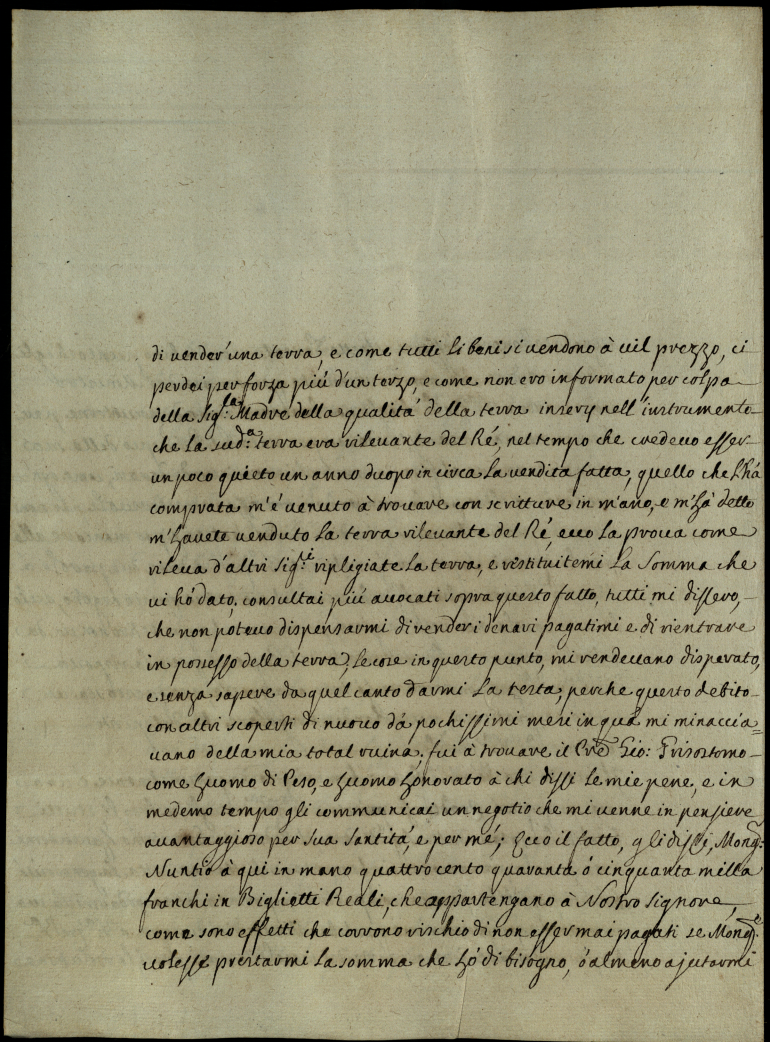 di vender' una terra, e come tutti li beni si vendono à vil prezzo, ci
perdei per forza più d'un terzo, e come non ero informato per colpa
della Sig.la Madre della qualità della terra inserij nell'instrumento
che la sud.a terra era rilevante del Ré, nel tempo che credevo esser
un poco quieto un anno duopo in circa la vendita fatta, quello che l'há
comprata m'é venuto à trovare con scritture in mano, e m'há detto
m'havete venduto la terra rilevante del Ré, ecco la prova come
rileva d'altri Sig.ri ripligiate la terra, e restituitemi la Somma che
vi hó dato; consultai più avocati sopra questo fatto, tutti mi dissero,
che non potevo dispensarmi di render i denari pagatimi e di rientrare
in possesso della terra, le cose in questo punto, mi rendevano disperato,
e senza sapere da quel canto darmi la testa, perche questo debito
con altri scoperti di nuovo dá pochissimi mesi in quá mi minaccia=
vano della mia total ruina, fui à trovare il Pre Gio: Grisostomo
come huomo di Peso, e huomo honorato à chi dissi le mie pene, e in
medemo tempo gli communicai un negotio che mi venne in pensiere
avantaggioso per sua santitá, e per mé; Ecco il fatto, gli dissi, Mong.r
Nuntio à qui in mano quattro cento quaranta ó cinquanta milla
franchi in Biglietti Reali, che appartengano à Nostro Signore,
come sono effetti che corrono rischio di non esser mai pagati se Mong.r
volesse prestarmi la somma che hó di bisogno, ó almeno ajutarmi